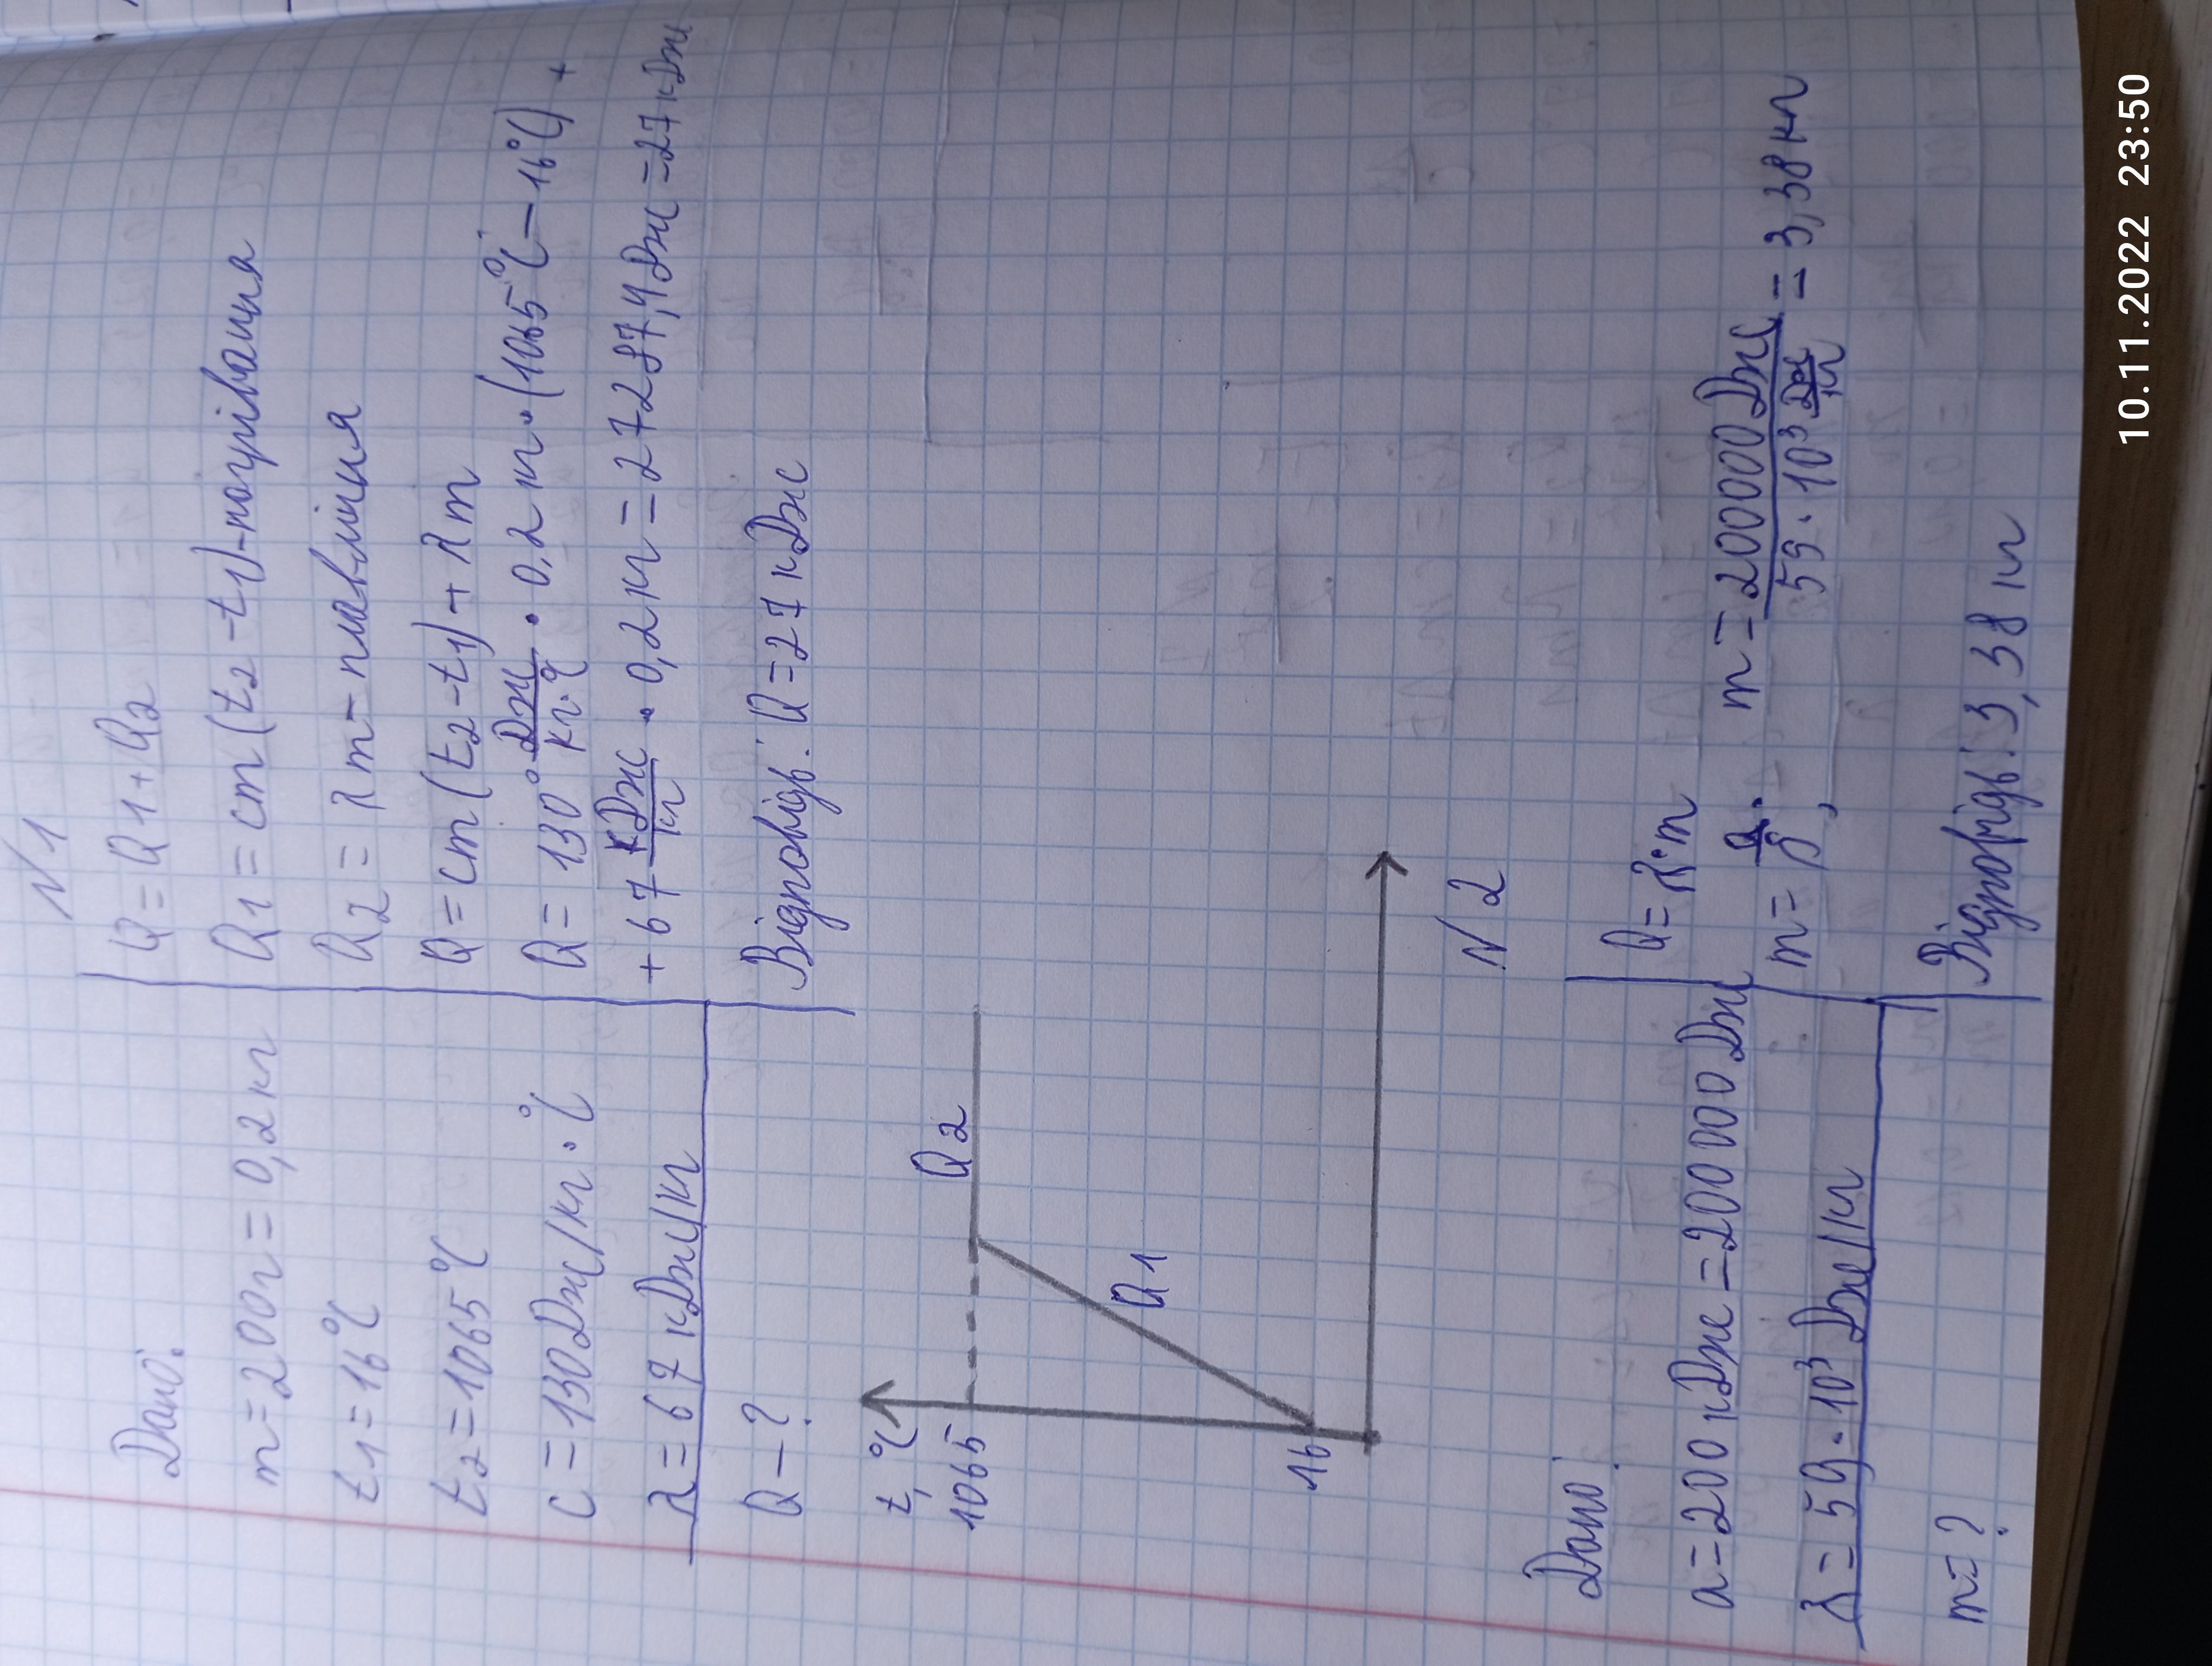 N1
Дано:
m = 200г = 0,2кг
t1 = 16°C
t2 = 1065°C
c = 130Дж/кг·°C
λ = 67 кДж/кг
Q - ?
Q = Q1 + Q2
Q1 = cm(t2 - t1) - нагрівання
Q2 = λm - плавління
Q = cm(t2 - t1) + λm
Q = 130 Дж/кг·°C · 0,2 кг · (1065°C - 16°C) +
+ 67 кДж/кг · 0,2кг = 27287,4Дж = 27кДж
Відповідь: Q = 27 кДж
t,°C
1065
16
Q2
Q1
N 2
Дано:
Q = 200 кДж = 200000 Дж
λ = 59·10³ Дж/кг
m = ?
Q = λ·m
m = Q/λ; m = 200000Дж/59·10³ Дж/кг = 3,38кг
Відповідь: 3,38 кг
10.11.2022 23:50